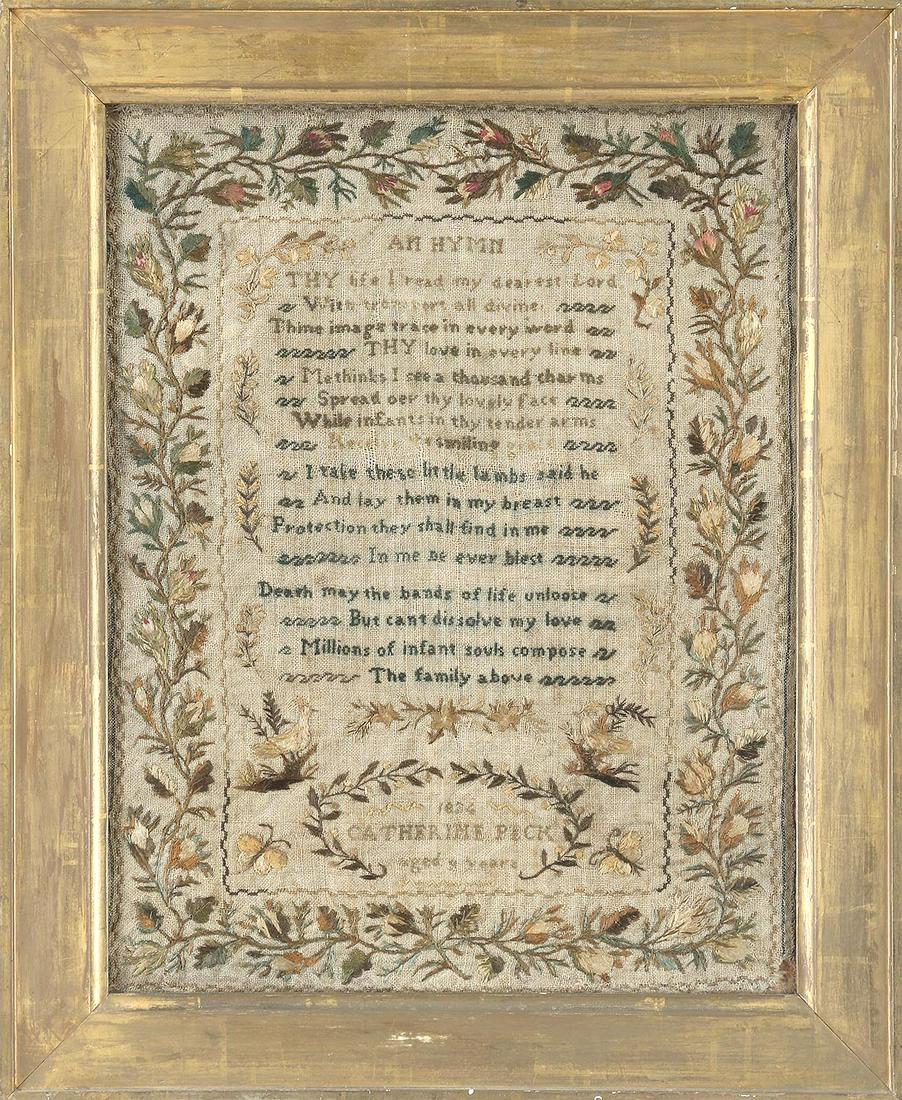 AN HYMN
THY life I read my dearest Lord
With transport all divine
Thine image trace in every word
THY love in every line
Methinks I see a thousand charms
Spread oer thy lovely face
While infants in thy tender arms
smiling
I take these little lambs said he
And lay them in my breast
Protection they shall find in me
In me be ever blest
Death may the bands of life unloose
But cant dissolve my love
Millions of infant souls compose
The family above
CATHERINE PECK
aged years